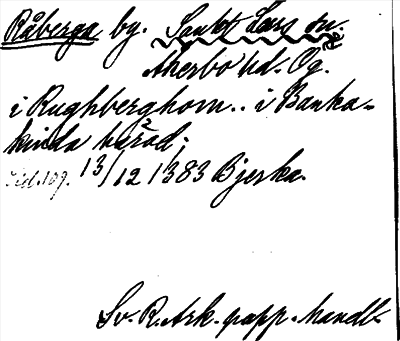 Råberga by. Sankt Lars sn.
Akerbo hd. Ög.
i Rughberghom.. i Banka-
kinda härad;
13/12 1383 Bjerka.
Sv. R. Ark. papp. handl.